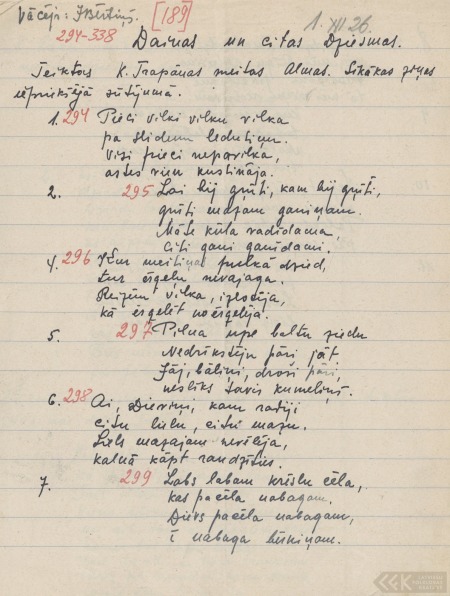 Vācēji: J. Bērtiņš.
[189]
1. XII 26.
294-338
Dainas un citas Dziesmas.
Teiktas K. Trapānas meitas Almas. Sīkākas ziņas
iepriekšējā sūtījumā.
1. 294 Pieci vilki vilku vilka
pa slidenu ledutiņu.
Visi pieci nepavilka,
astes vien kustināja.
2. 295 Lai bij grūti, kam bij grūti,
grūti mazam ganiņam.
Māte kūla vadīdama,
citi gani ganīdami.
4. 296 Kur meitiņas pulkā dzied,
tur ērģeļu nevajaga.
Reizēm vilka, izlocīja,
kā ērģelēt noērģelēja.
5. 297 Pilna upe baltu ziedu
Nedrīkstēju pāri jāt
Jāj, bāliņ, droši pāri,
neslīks tavis kumeliņš.
6. 298 Ai, Dieviņi, kam radīji
citu lielu, citu mazu.
Liels mazajam nevēlēja,
kalnā kāpt raudzīties.
7. 299 Labs labam krēslu cēla,
kas pacēla nabagam.
Dievs pacēla nabagam,
i nabaga bērniņam.